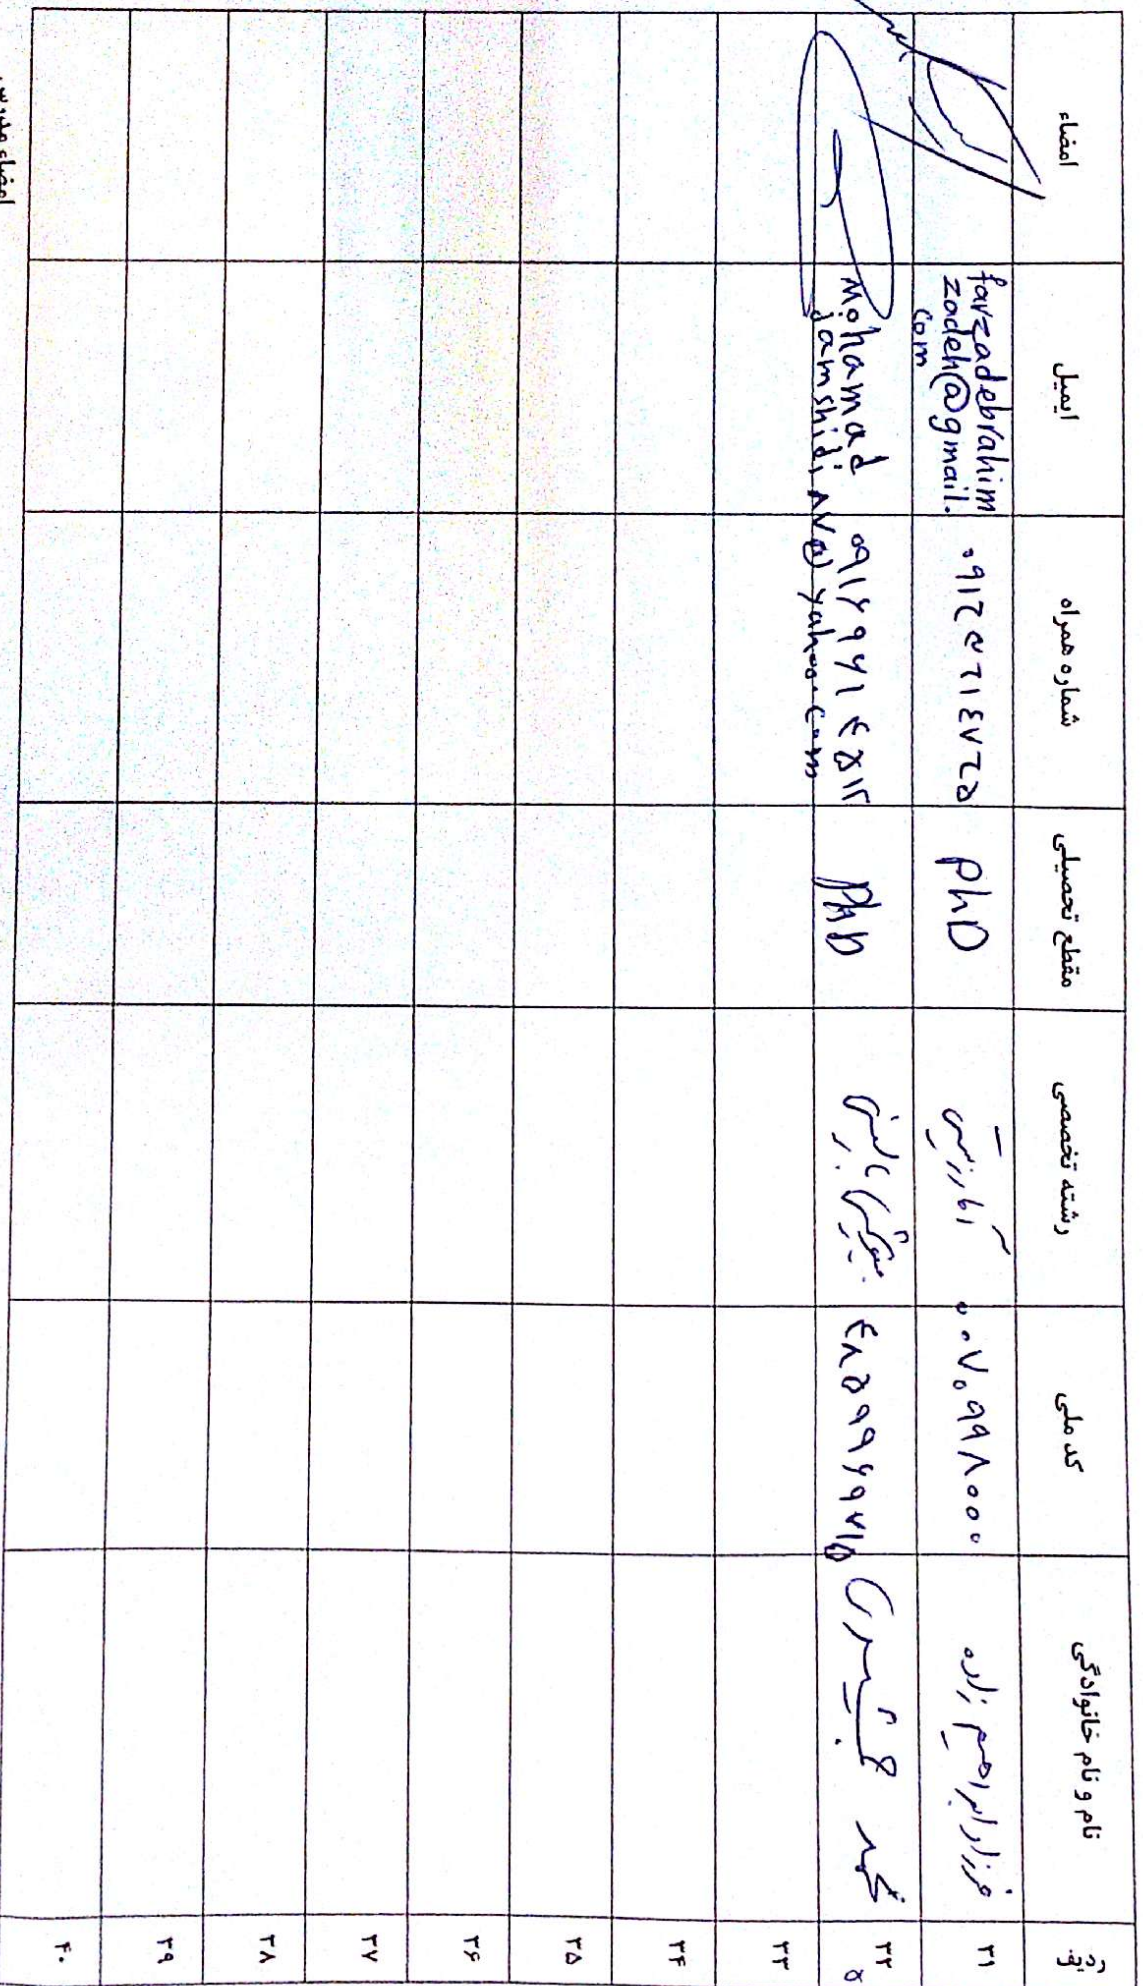 ردیف
نام و نام خانوادگی
کد ملی
رشته تخصصی
مقطع تحصیلی
شماره همراه
ایمیل
امضاء
۳۱
فرزاد ابراهیم زاده
۰۰۷۰۹۹۸۰۰۰
PhD
farzadebrahim
zadeh@gmail.
com
۳۲
محمد جمشیدی
۴۸۵۹۹۶۹۷۱۵
فیزیک بالینی
PhD
۰۹۱۶۹۶۱۴۵۱۲
Mohamad
Jamshidi ۸۷@yahoo.com
۳۳
۳۴
۳۵
۳۶
۳۷
۳۸
۳۹
۴۰
امضاء مدرس